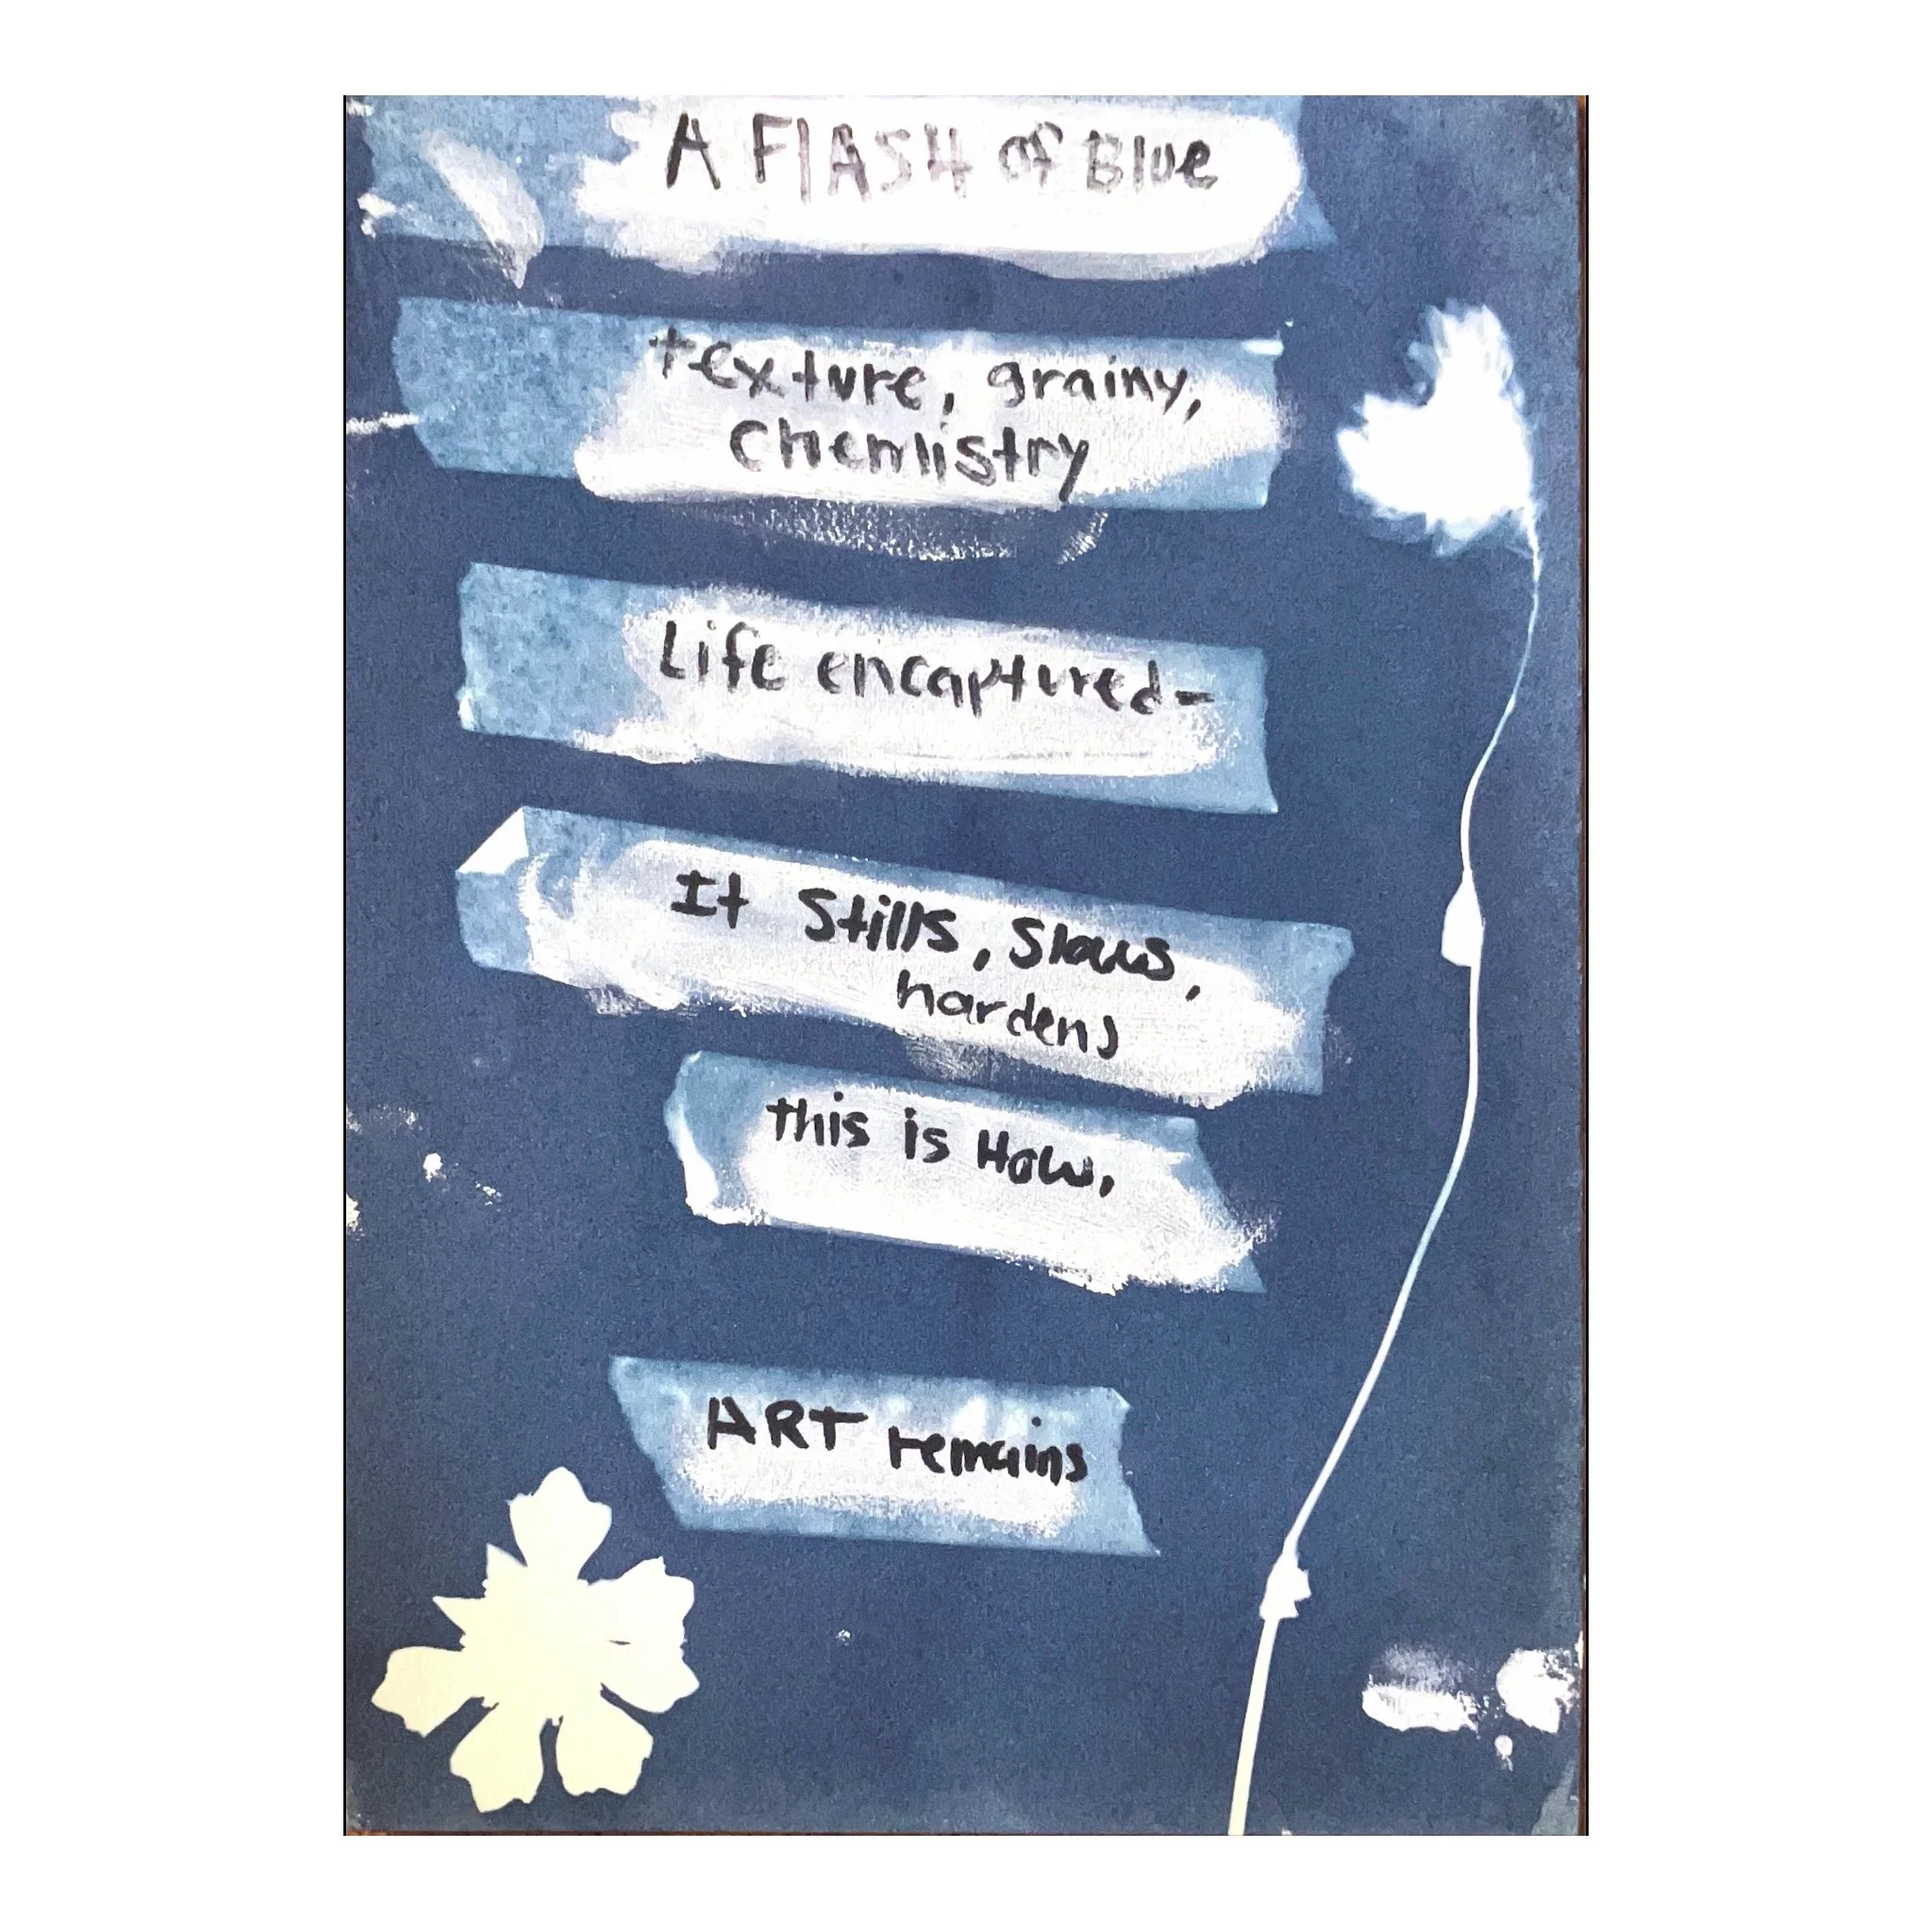 A FlASH of Blue
texture, grainy,
Chemistry
Life encaptured-
It Stills, Slows,
hardens
this is How,
ART remains